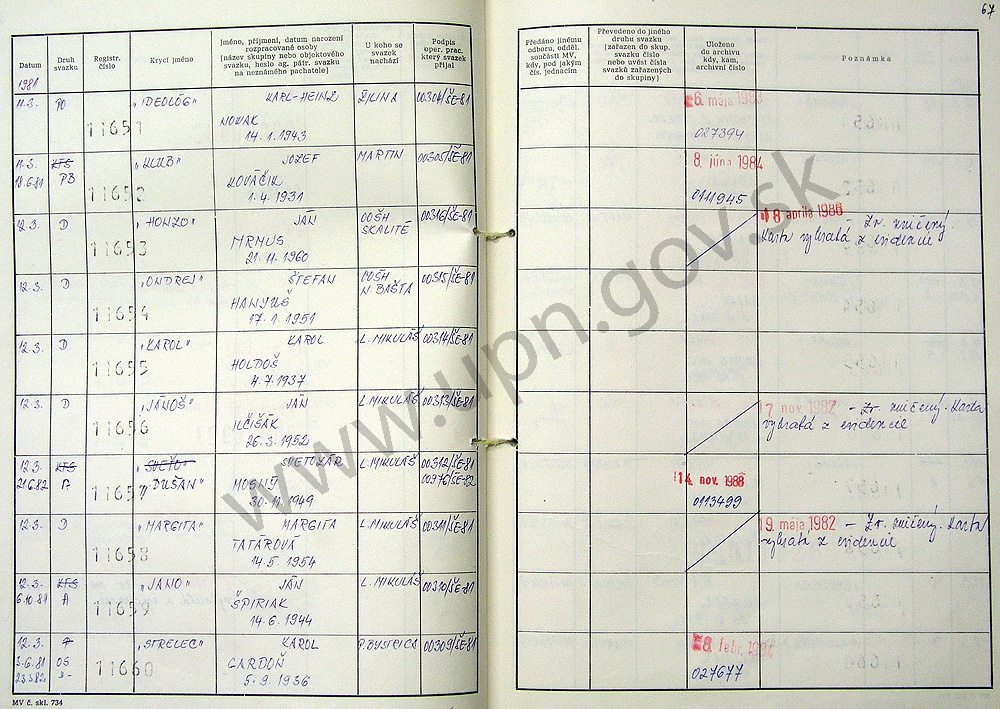 67
Datum
Druh svazku
Registr. číslo
Krycí jméno
Jméno, příjmení, datum narození
rozpracované osoby
(název skupiny nebo objektového
svazku, heslo ag. pátr. svazku
na neznámého pachatele)
U koho se
svazek
nachází
Podpis
oper. prac.
který svazek
přijal
Předáno jinému
odboru, odděl.
součásti MV,
kdy, pod jakým
čís. jednacím
Převedeno do jiného
druhu svazku
(zařazen do skup.
svazku číslo
nebo uvést čísla
svazků zařazených
do skupiny)
Uloženo
do archivu
kdy, kam,
archivní číslo
Poznámka
1981
11.3. PO 11651 "IDEOLÓG" KARL-HEINZ ŽILINA 00304/ŠE-81
NOVAK
14.1.1943
6. maja
027394
11.3. KTS 11652 "KLUB" JOZEF MARTIN 00305/ŠE-81
18.6.81 PB KOVÁČIK
1.4.1931
8. júna 1984
0111945
12.3. D 11653 "HONZO" JÁN OOŠH SKALITÉ 00316/ŠE-81
MRMUS
21.11.1960
18 apríla 1986 - Zv. zničený.
Karta vybratá z evidencie
12.3. D 11654 "ONDREJ" ŠTEFAN OOŠH N. BAŠTA 00315/ŠE-81
HANJUŠ
17.1.1951
12.3. D 11655 "KAROL" KAROL L. MIKULÁŠ 00314/ŠE-81
HOLDOŠ
4.7.1937
12.3. D 11656 "JÁNOŠ" JÁN L. MIKULÁŠ 00313/ŠE-81
ILČIŠÁK
26.3.1952
17. nov. 1982 - Zv. zničený. Karta
vybratá z evidencie
12.3. KTS 11657 "SVEŤO" SVETOZÁR L. MIKULÁŠ 00312/ŠE-81
21.6.82 A "DUŠAN" MOSNÝ 00976/ŠE-82
30.11.1949
14. nov. 1988
0113499
12.3. D 11658 "MARGITA" MARGITA L. MIKULÁŠ 00311/ŠE-81
TATÁROVÁ
14.5.1954
19. mája 1982 - Zv. zničený. Karta
vybratá z evidencie
12.3. KTS 11659 "JANO" JÁN L. MIKULÁŠ 00310/ŠE-81
6.10.81 A ŠPIRIAK
14.6.1944
12.3. 11660 "STRELEC" KAROL P. BYSTRICA 00309/ŠE-81
3.6.81 OS GARDOŇ
23.3.82 5.9.1936
8. febr.
027677
MV č. skl. 734
www.upn.gov.sk